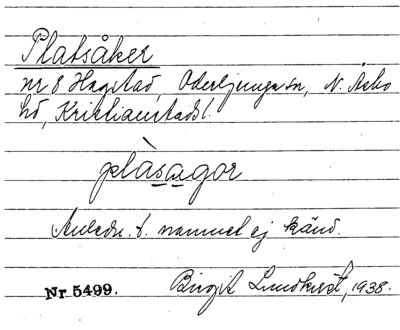 Platsåker
nr 8 Hagstad, Oderljunga sn, N. Åsbo
hd, Kristianstads l.
plàsagor
Anledn. t. namnet ej känd.
Nr 5499. Birgit Lundkvist, 1938.